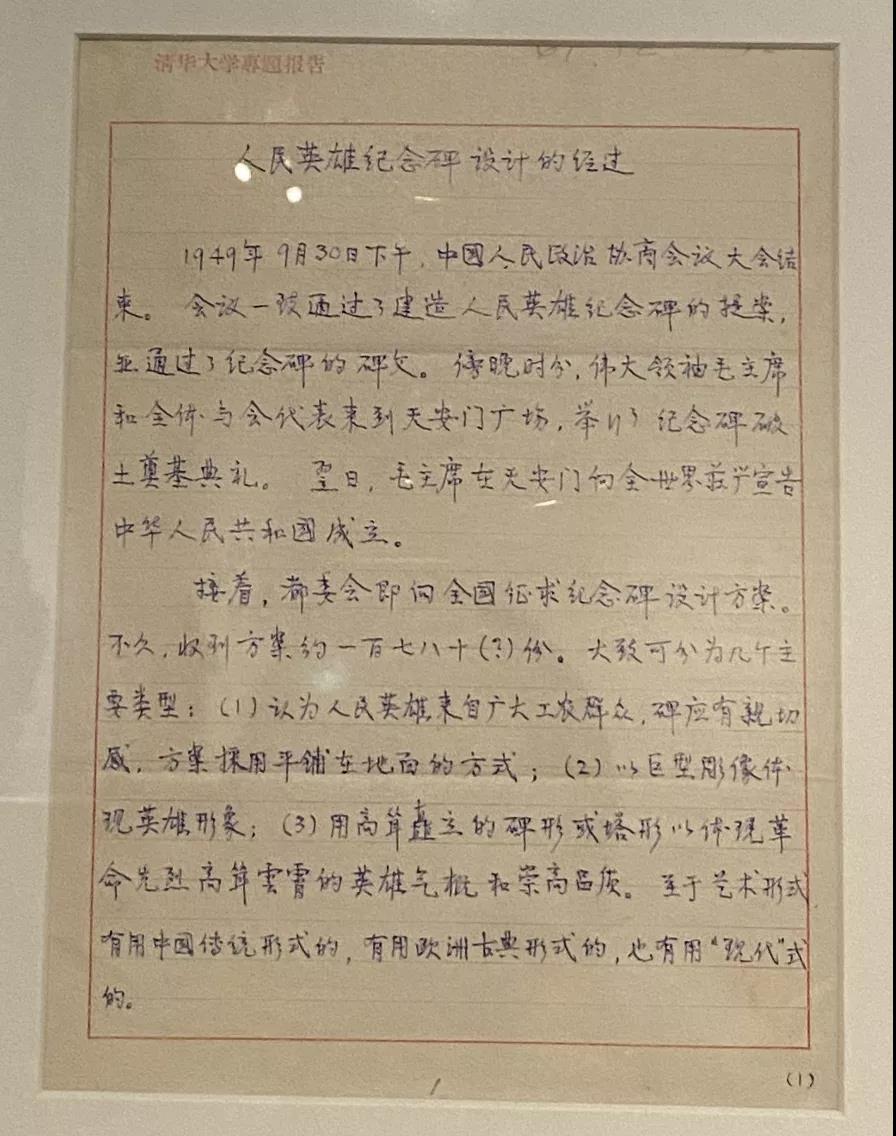 清华大学專題报告
人民英雄纪念碑设计的经过
1949年9月30日下午，中國人民政治协商会议大会结
束。会议一致通过了建造人民英雄纪念碑的提案，
並通过了纪念碑的碑文。傍晚时分，伟大领袖毛主席
和全体与会代表来到天安门广场，举行了纪念碑破
土奠基典礼。翌日，毛主席在天安门向全世界莊严宣告
中华人民共和國成立。
接着，都委会即向全国征求纪念碑设计方案。
不久，收到方案约一百七八十(?)份。大致可分为几个主
要类型：(1)认为人民英雄来自广大工农群众，碑应有親切
感，方案採用平鋪在地面的方式；(2)以巨型彫像体
现英雄形象；(3)用高耸矗立的碑形或塔形以体现革
命先烈高耸雲霄的英雄气概和崇高品质。至于艺术形式
有用中國传统形式的，有用欧洲古典形式的，也有用“现代”式
的。
(1)